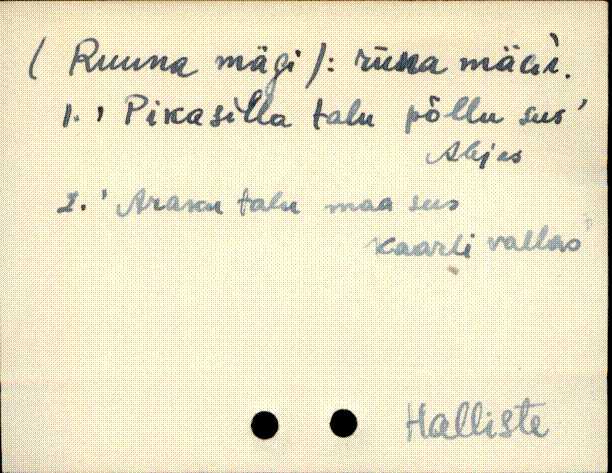 ( Ruuna mägi ): rūna mägi.
1. ' Pikasilla talu põllu sus '
Abjas
2. ' Araku talu maa sus
Kaarli vallas '
Halliste